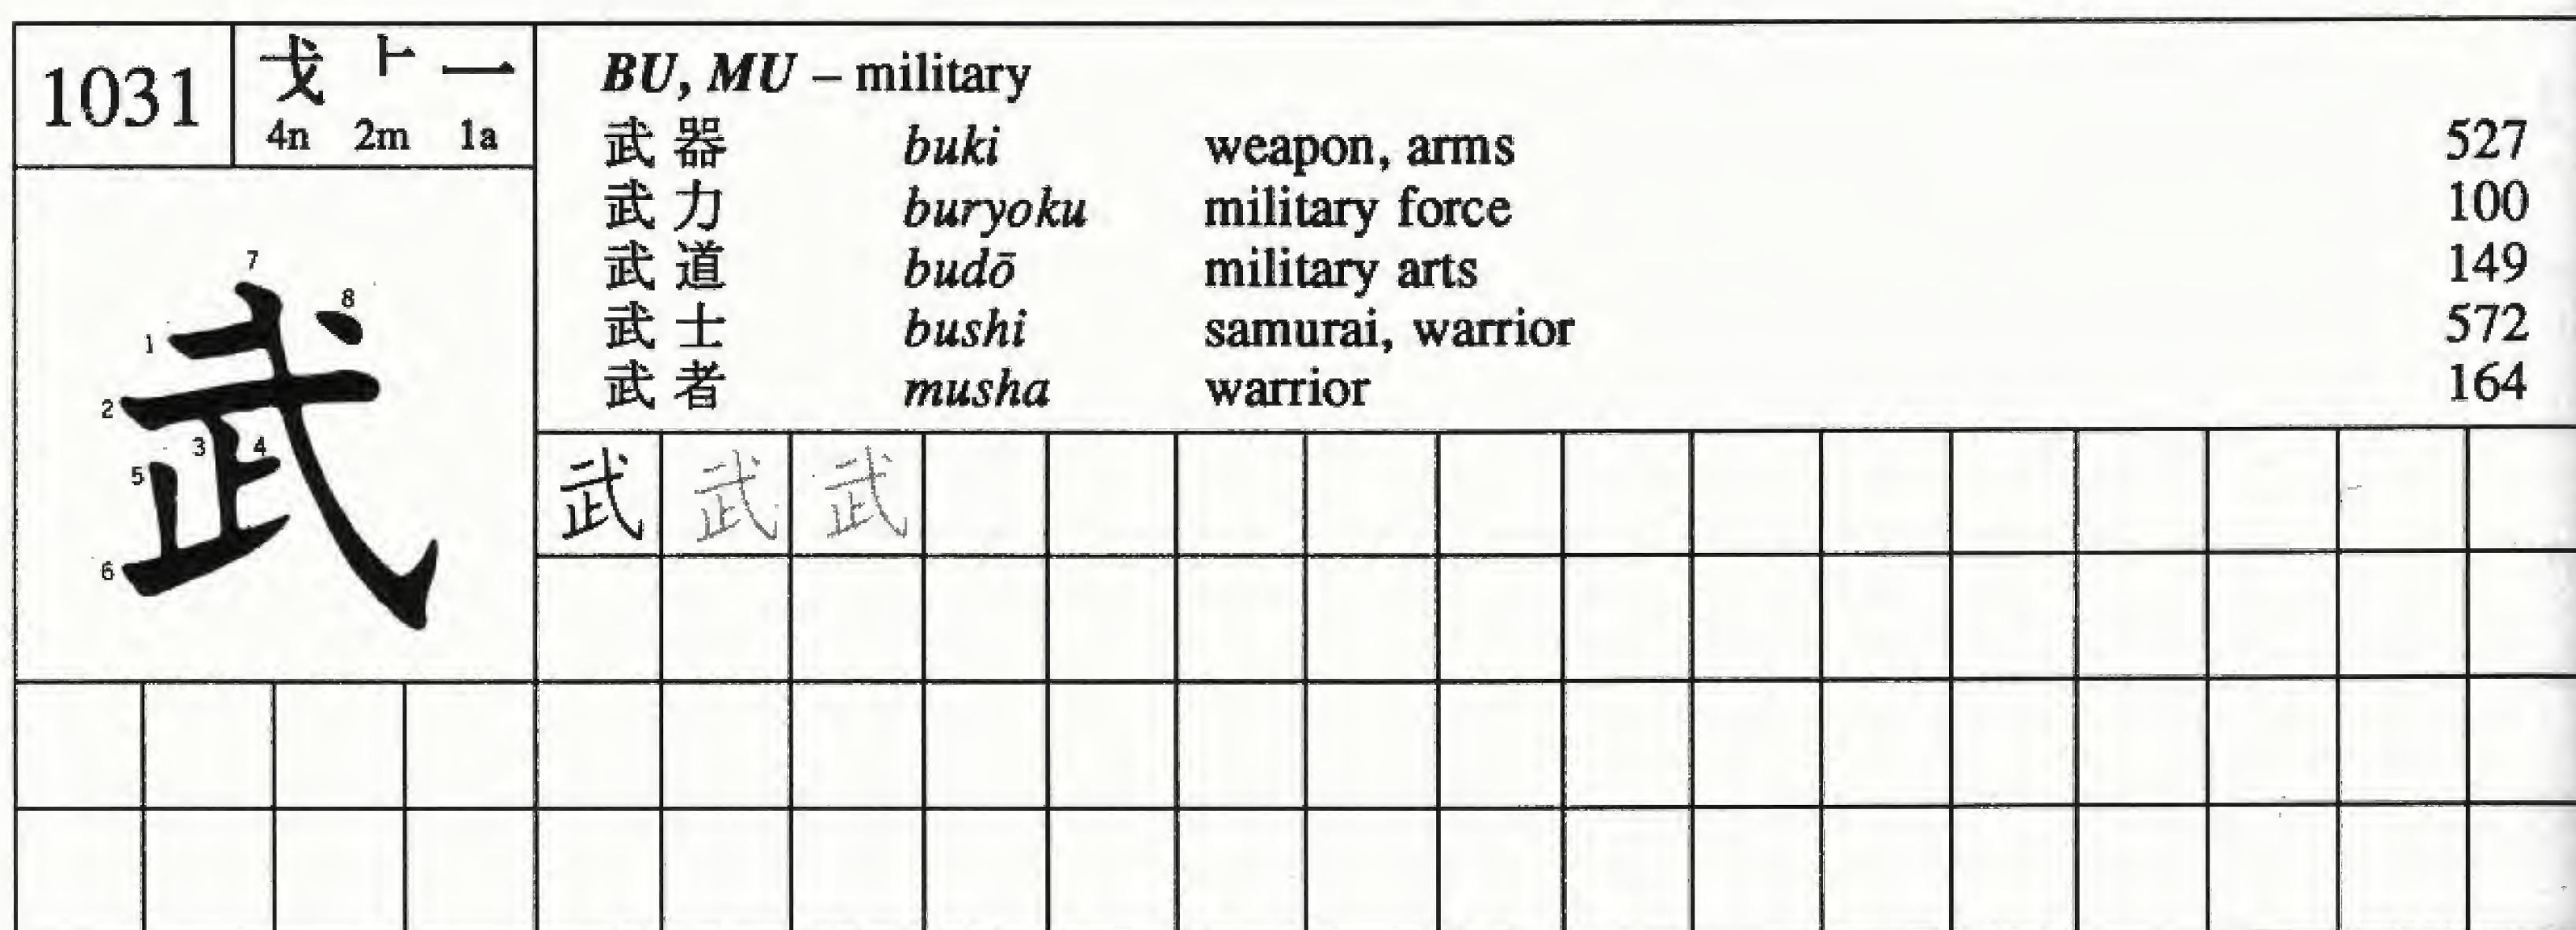 1031
戈 ⺊ 一
4n 2m 1a
BU, MU – military
武器 buki weapon, arms 527
武力 buryoku military force 100
武道 budō military arts 149
武士 bushi samurai, warrior 572
武者 musha warrior 164
7
8
1
2
3 4
5
6
武
武 武 武